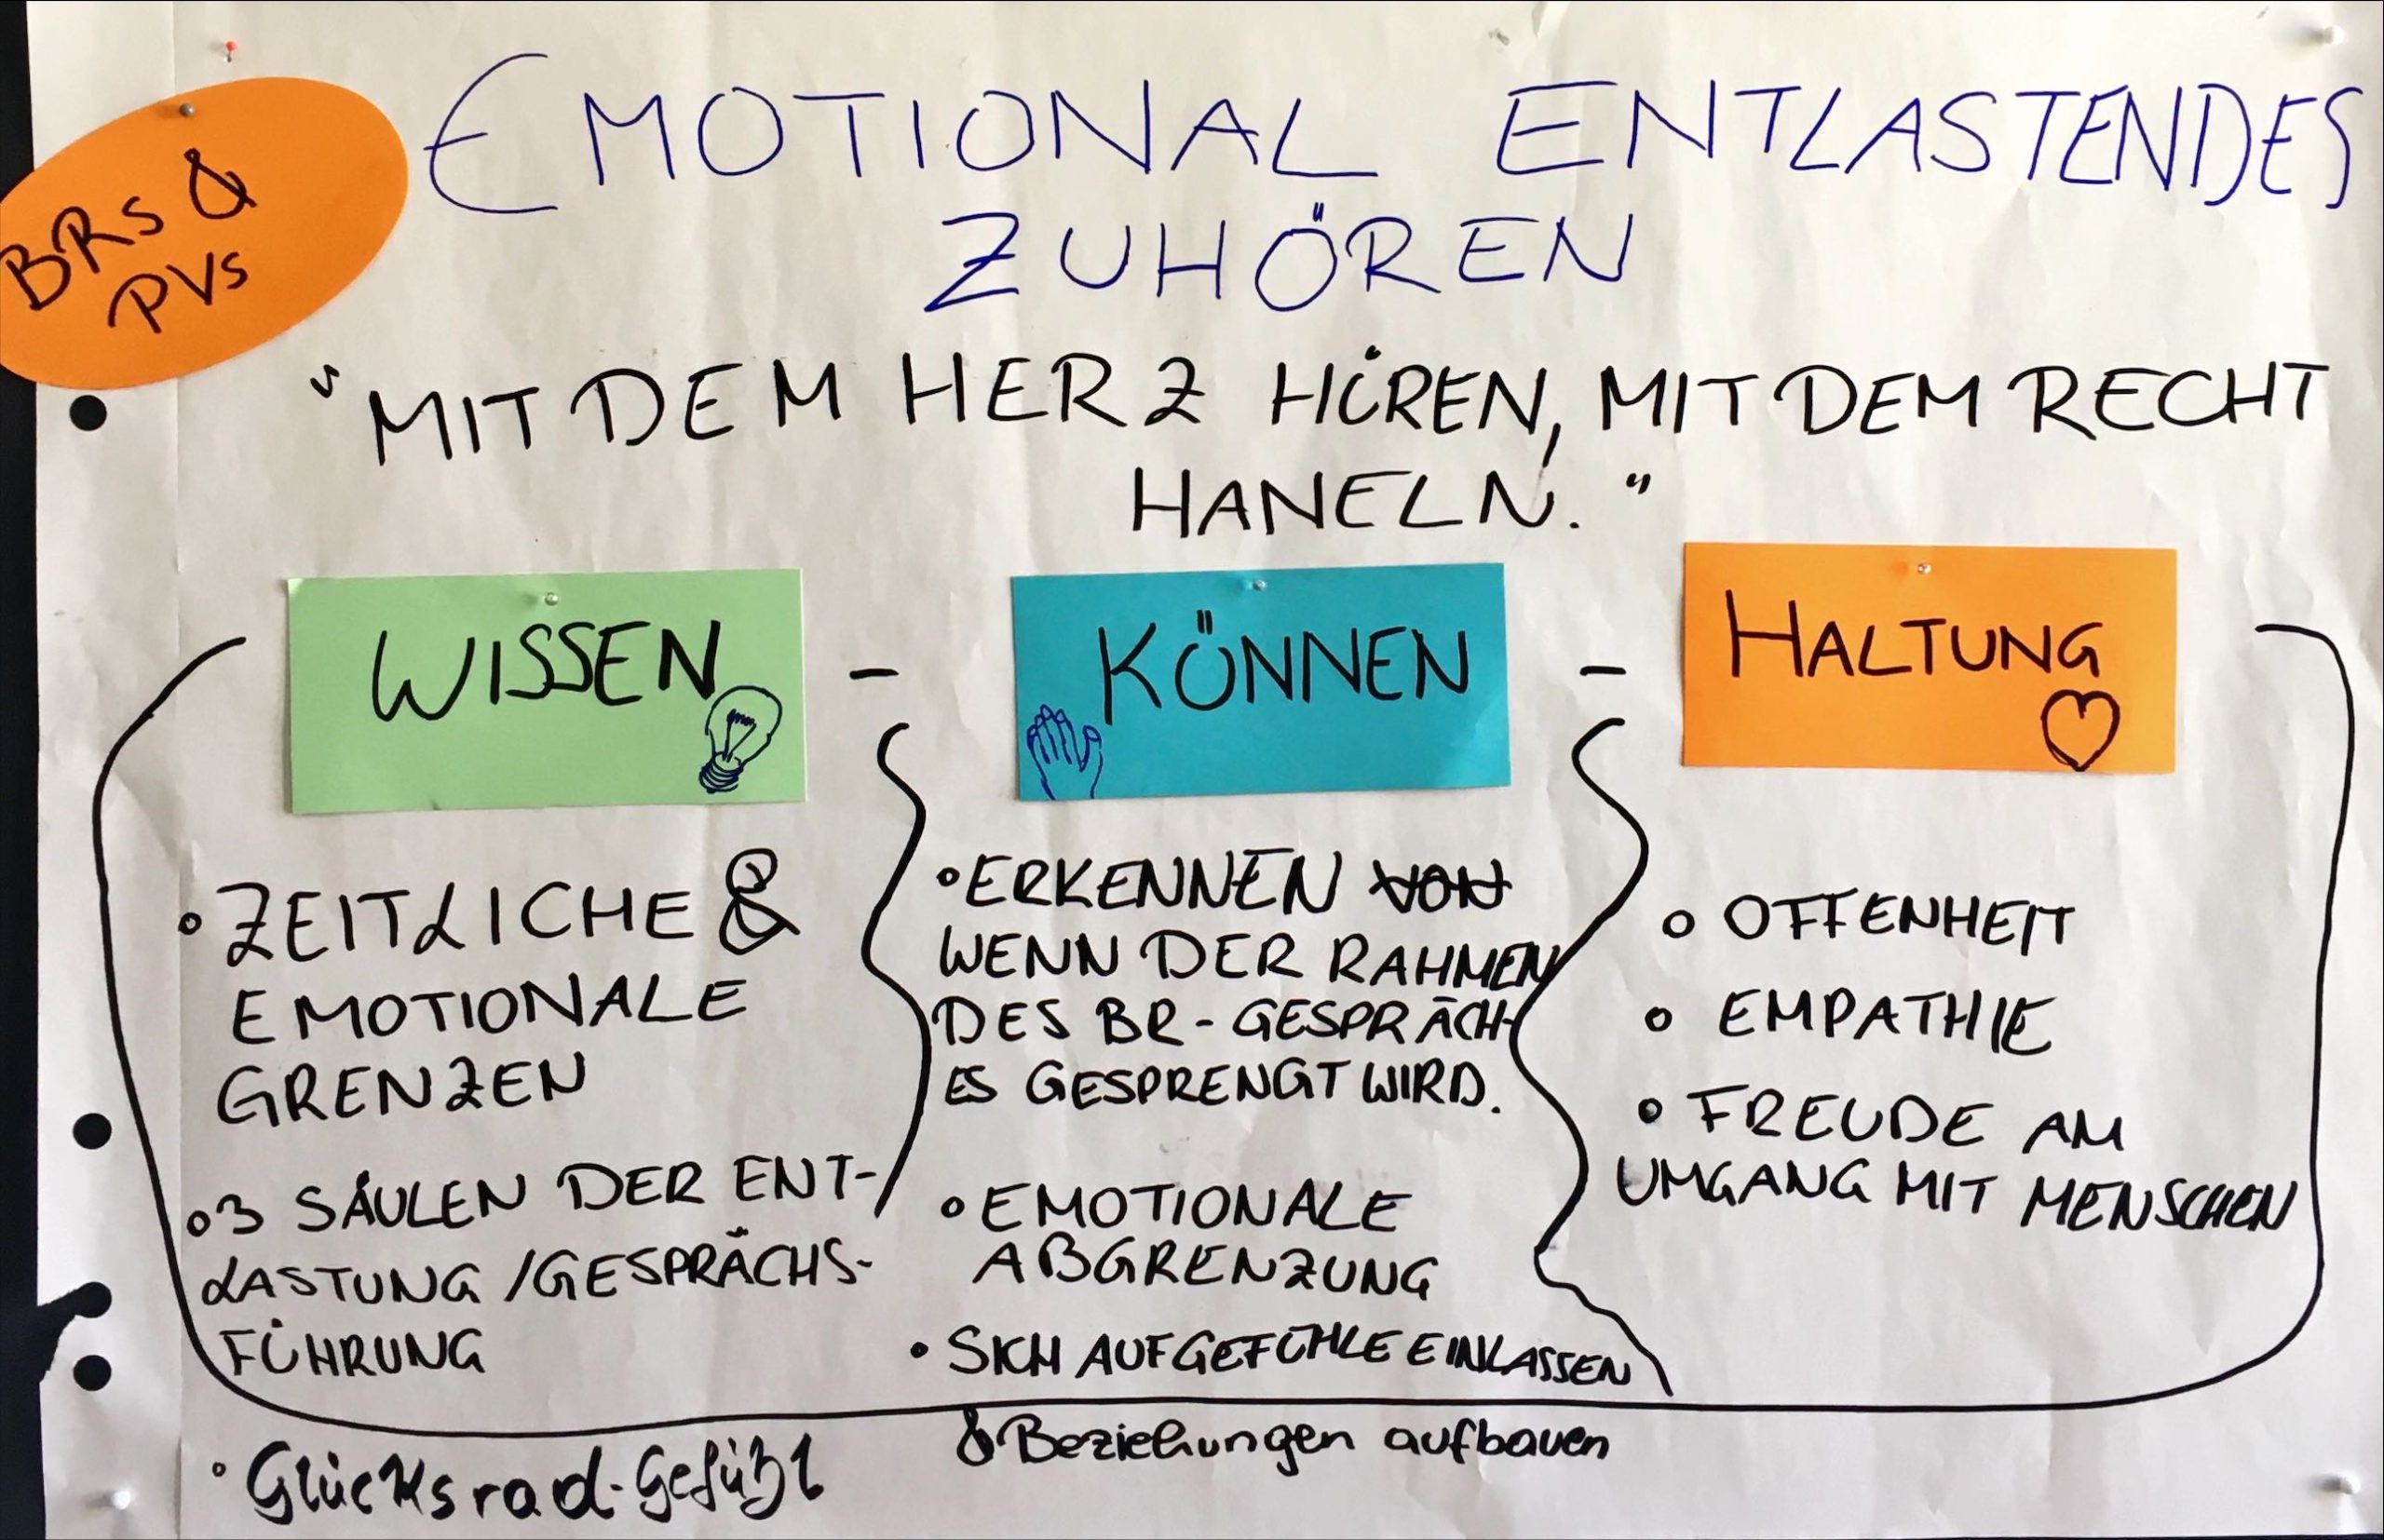 BRs &
PVs
EMOTIONAL ENTLASTENDES
ZUHÖREN
"MIT DEM HERZ HÖREN, MIT DEM RECHT
HANELN."
WISSEN - KÖNNEN - HALTUNG
• ZEITLICHE &
EMOTIONALE
GRENZEN
• 3 SÄULEN DER ENT-
LASTUNG / GESPRÄCHS-
FÜHRUNG
• Glücksrad-Gefühl
• ERKENNEN VON
WENN DER RAHMEN
DES BR-GESPRÄCH-
ES GESPRENGT WIRD.
• EMOTIONALE
ABGRENZUNG
• SICH AUF GEFÜHLE EINLASSEN
& Beziehungen aufbauen
• OFFENHEIT
• EMPATHIE
• FREUDE AM
UMGANG MIT MENSCHEN